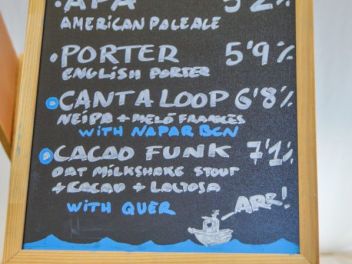 APA 5'2%
AMERICAN PALE ALE
• PORTER 5'9%
ENGLISH PORTER
CANTALOOP 6'8%
NEIPA + MELÓ FRANCÈS
WITH NAPAR BCN
CACAO FUNK 7'1%
OAT MILKSHAKE STOUT
+ CACAO + LACTOSA
WITH QUER
ARR!